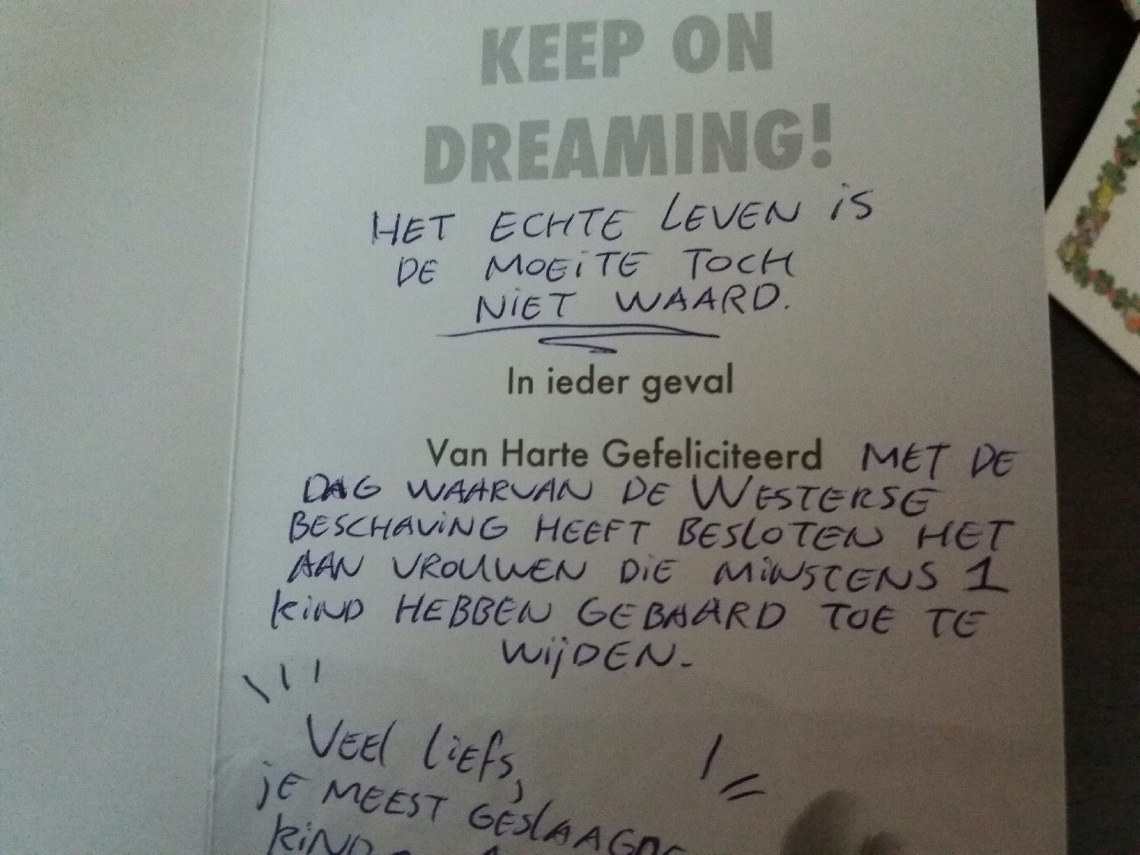 KEEP ON
DREAMING!
HET ECHTE LEVEN iS
DE MOEiTE TOCH
NiET WAARD.
In ieder geval
Van Harte Gefeliciteerd MET DE
DAG WAARVAN DE WESTERSE
BESCHAViNG HEEFT BESLOTEN HET
AAN VROUWEN DiE MiNSTENS 1
KiND HEBBEN GEBAARD TOE TE
WijDEN.
VEEL LiEFS,
jE MEEST GESLAAGDE
KiND